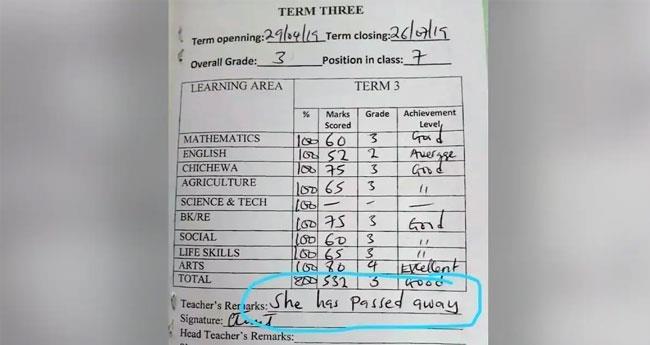 TERM THREE
Term openning: 29/04/19 Term closing: 26/07/19
Overall Grade: 3 Position in class: 7
LEARNING AREA TERM 3
% Marks Scored Grade Achievement Level
MATHEMATICS 100 60 3 Good
ENGLISH 100 52 2 Average
CHICHEWA 100 75 3 Good
AGRICULTURE 100 65 3 "
SCIENCE & TECH 100 — — —
BK/RE 100 75 3 Good
SOCIAL 100 60 3 "
LIFE SKILLS 100 65 3 "
ARTS 100 80 4 Excellent
TOTAL 800 532 3 Good
Teacher's Remarks: She has passed away
Signature:
Head Teacher's Remarks: